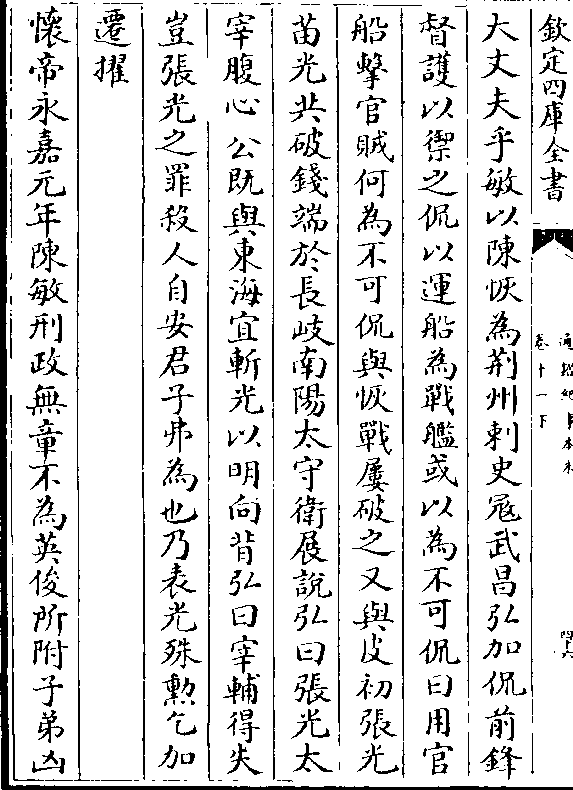 欽定四庫全書
通鑑紀事本末
卷十一下
四十六
大丈夫乎敏以陳恢為荆州刺史冦武昌弘加侃前鋒
督護以禦之侃以運船為戰艦或以為不可侃曰用官
船擊官賊何為不可侃與恢戰屢破之又與皮初張光
苗光共破錢端於長岐南陽太守衛展說弘曰張光太
宰腹心公既與東海宜斬光以明向背弘曰宰輔得失
豈張光之罪殺人自安君子弗為也乃表光殊勲乞加
遷擢
懷帝永嘉元年陳敏刑政無章不為英俊所附子弟凶